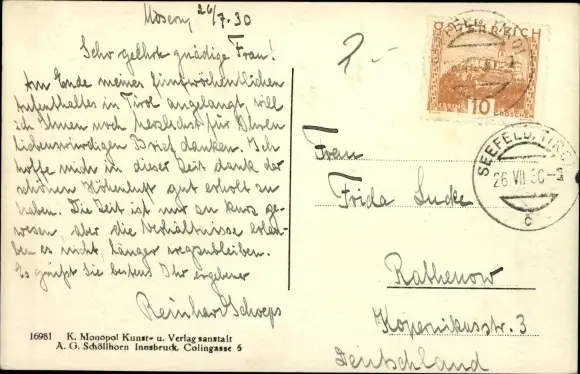 Mösern, 26/7. 30
Sehr geehrte gnädige Frau!
Am Ende meines fünfwöchentlichen
Aufenthaltes in Tirol angelangt, will
ich Ihnen noch herzlichst für Ihren
liebenswürdigen Brief danken. Ich
hoffe mich in dieser Zeit dank der
schönen Höhenluft gut erholt zu
haben. Die Zeit ist mir zu kurz ge-
wesen, aber die Verhältnisse erlau-
ben es nicht, länger wegzubleiben.
Es grüßt Sie bestens Ihr ergebener
Reinhard Schreps
16981 K. Monopol Kunst- u. Verlagsanstalt
A. G. Schöllhorn Innsbruck, Colingasse 6
2.-
ÖSTERREICH
10
GROSCHEN
SEEFELD, TIROL
26.VII.30
c
Frau
Frida Lucke
Rathenow
Kopernikusstr. 3
Deutschland